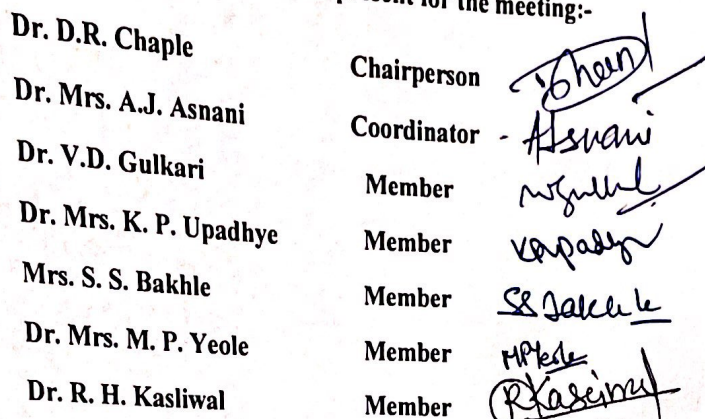 for the meeting:-
Dr. D.R. Chaple Chairperson
Dr. Mrs. A.J. Asnani Coordinator - AJsnani
Dr. V.D. Gulkari Member
Dr. Mrs. K. P. Upadhye Member
Mrs. S. S. Bakhle Member SSBakhle
Dr. Mrs. M. P. Yeole Member MPYeole
Dr. R. H. Kasliwal Member RKasliwal